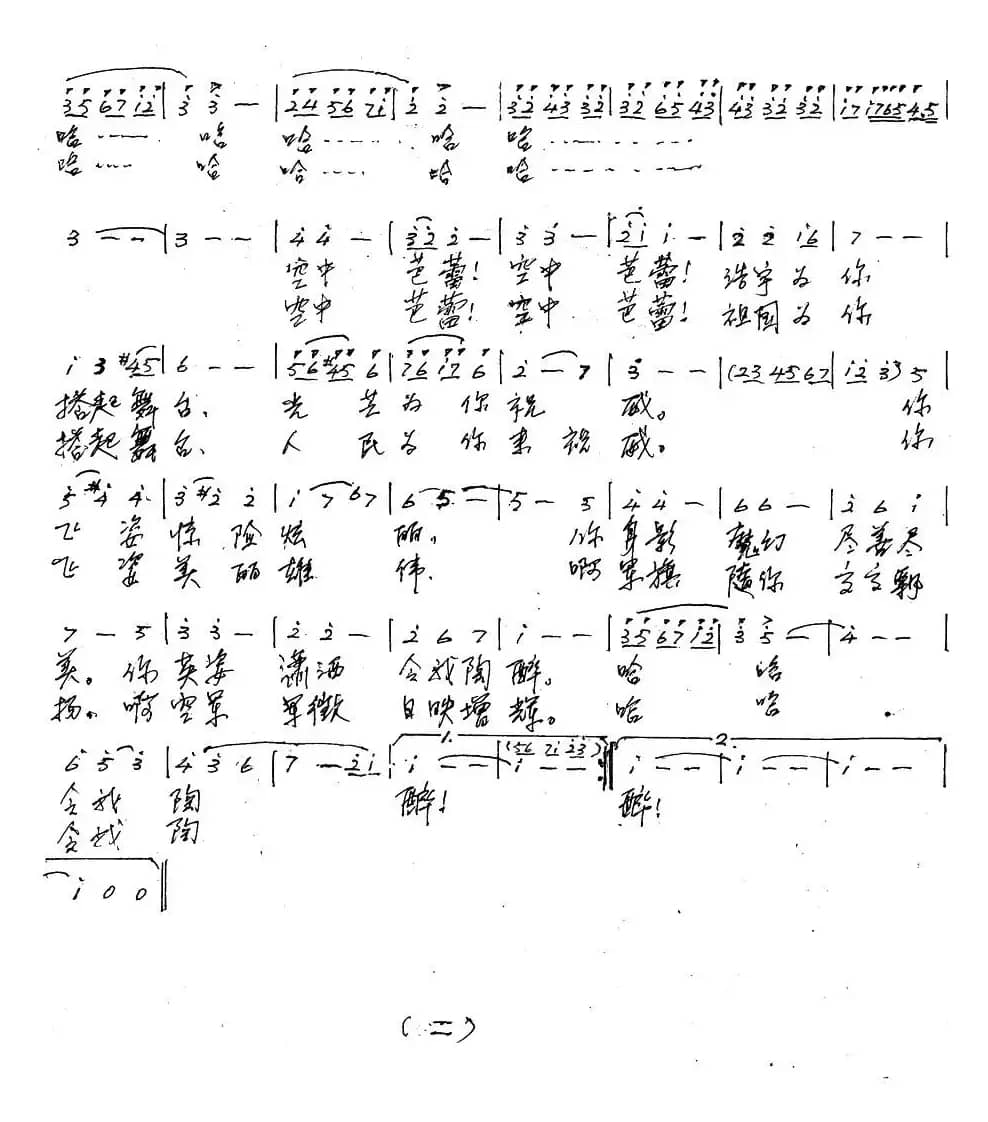 3 5 6 7 i 2 | 3 3 – | 2 4 5 6 7 i | 2 2 – | 3 2 4 3 3 2 | 3 2 6 5 4 3 | 4 3 3 2 3 2 | i 7 i 7 6 5 4. 5 |
哈…… 哈 哈…… 哈 哈…………
哈…… 哈 哈…… 哈 哈…………
3 – – | 3 – – | 4 4 – | 3 2 2 – | 3 3 – | 2 i i – | 2 2 i 6 | 7 – – |
空中 芭蕾! 空中 芭蕾! 浩宇为 你
空中 芭蕾! 空中 芭蕾! 祖国为 你
i 3 #4 5 | 6 – – | 5 6 #4 5 6 | 7 6 i 7 6 | 2 – 7 | 3 – – | (2 3 4 5 6 7 | i 2 3) 5 |
搭起舞台、 光 芒为 你 祝 威。 你
搭起舞台、 人 民为 你 来祝 威。 你
5 #4 4 | 3 #2 2 | i 7 6 7 | 6 5 – | 5 – 5 | 4 4 – | 6 6 – | 2 6 i |
飞 姿 惊 险 炫 丽, 你 身影 魔幻 尽善尽
飞 姿 美 丽 雄 伟, 啊 军旗 随你
7 – 5 | 3 3 – | 2 2 – | 2 6 7 | i – – | 3 5 6 7 i 2 | 3 5 – | 4 – – |
美。你 英姿 潇洒 令我陶 醉。 哈 哈
扬, 啊 空军 军徽 日映增 辉。 哈 哈 .
6 5 3 | 4 3 6 | 7 – 2 i | 1. i – – | (5 6 7 i 2 3) i – – :| 2. i – – | i – – | i – – |
令我 陶 醉! 醉!
令我 陶
i 0 0 ‖
(二)